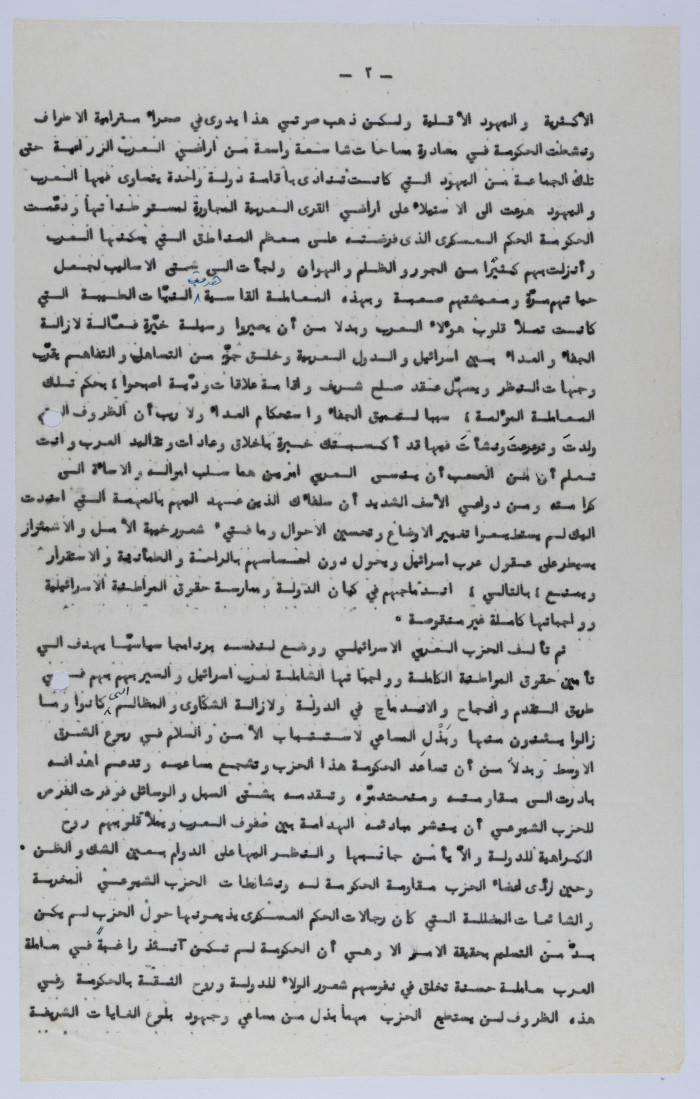 — ٢ —
الأكثرية واليهود الأقلية ولكن ذهب صوتي هذا يدوى في صحراء مترامية الاطراف
ونشطت الحكومة في مصادرة مساحات شاسعة واسعة من أراضي العرب الزراعية حتى
تلك الجماعة من اليهود التي كانت تنادى باقامة دولة واحدة يتساوى فيها العرب
واليهود هرعت الى الاستيلاء على اراضي القرى العربية المجاورة لمستوطناتها ودعّمت
الحكومة الحكم العسكرى الذى فرضته على معظم المناطق التي يسكنها العرب
وأنزلت بهم كثيرًا من الجور والظلم والهوان ولجأت الى شتى الاساليب لجعل
حياتهم مرّة ومعيشتهم صعبة وبهذه المعاملة القاسية هدمت النيّات الطيبة التي
كانت تملأ قلوب هؤلاء العرب وبدلا من أن يصيروا وسيلة خيّرة فعّالة لازالة
الجفاء والعداء بين اسرائيل والدول العربية وخلق جوّ من التساهل والتفاهم يقرّب
وجهات النظر ويسهّل عقد صلح شريف واقامة علاقات وديّة اصبحوا ؛ بحكم تلك
المعاملة المؤلمة ؛ سببا لتعميق الجفاء واستحكام العداء ولا ريب أن الظروف
ولدتَ وترعرعتَ ونشأتَ فيها قد أكسبتك خبرة باخلاق وعادات وتقاليد العرب وانت
تعلم أن من الصعب أن ينسى العربي امرين هما سلب امواله والاساءة الى
كرامته ومن دواعي الأسف الشديد أن سلفائك الذين عهد اليهم بالمهمة التي اسندت
اليك لم يستطيعوا تغيير الاوضاع وتحسين الاحوال وما فتىء شعور خيبة الأمل والاشمئزاز
يسيطر على عقول عرب اسرائيل ويحول دون احساسهم بالراحة والطمأنينة والاستقرار
ويمنع ؛ بالتالي ؛ اندماجهم في كيان الدولة وممارسة حقوق المواطنية الاسرائيلية
وواجباتها كاملة غير منقوصة ٠
ثم تألف الحزب العربي الاسرائيلي ووضع لنفسه برنامجا سياسيًا يهدف الى
تأمين حقوق المواطنية الكاملة وواجباتها الشاملة لعرب اسرائيل والسير بهم
طريق التقدم والنجاح والاندماج في الدولة ولازالة الشكاوى والمظالم التي كانوا وما
زالوا يئنون منها وبَذْلِ المساعي لاستتباب الأمن والسلام في ربوع الشرق
الاوسط وبدلاً من أن تساعد الحكومة هذا الحزب وتشجع مساعيه وتدعم اهدافه
بادرت الى مقاومته ومنعت نموّه وتقدمه بشتى السبل والوسائل فوفرت الفرص
للحزب الشيوعي أن ينشر مبادئه الهدامة بين صفوف العرب ويملأ قلوبهم روح
الكراهية للدولة والّا يأمن جانبها والنظر اليها على الدوام بعين الشك والظن ٠
وحين رأى اعضاء الحزب مقاومة الحكومة له ونشاطات الحزب الشيوعيّ المخربة
والشائعات المضللة التي كان رجالات الحكم العسكرى يذيعونها حول الحزب لم يكن
بدّ من التسليم بحقيقة الامر الا وهي أن الحكومة لم تكن آنئذ راغبةً في معاملة
العرب معاملة حسنة تخلق في نفوسهم شعور الولاء للدولة وروح الثقة بالحكومة وفي
هذه الظروف لن يستطيع الحزب مهما بذل من مساعي وجهود بلوغ الغايات الشريفة